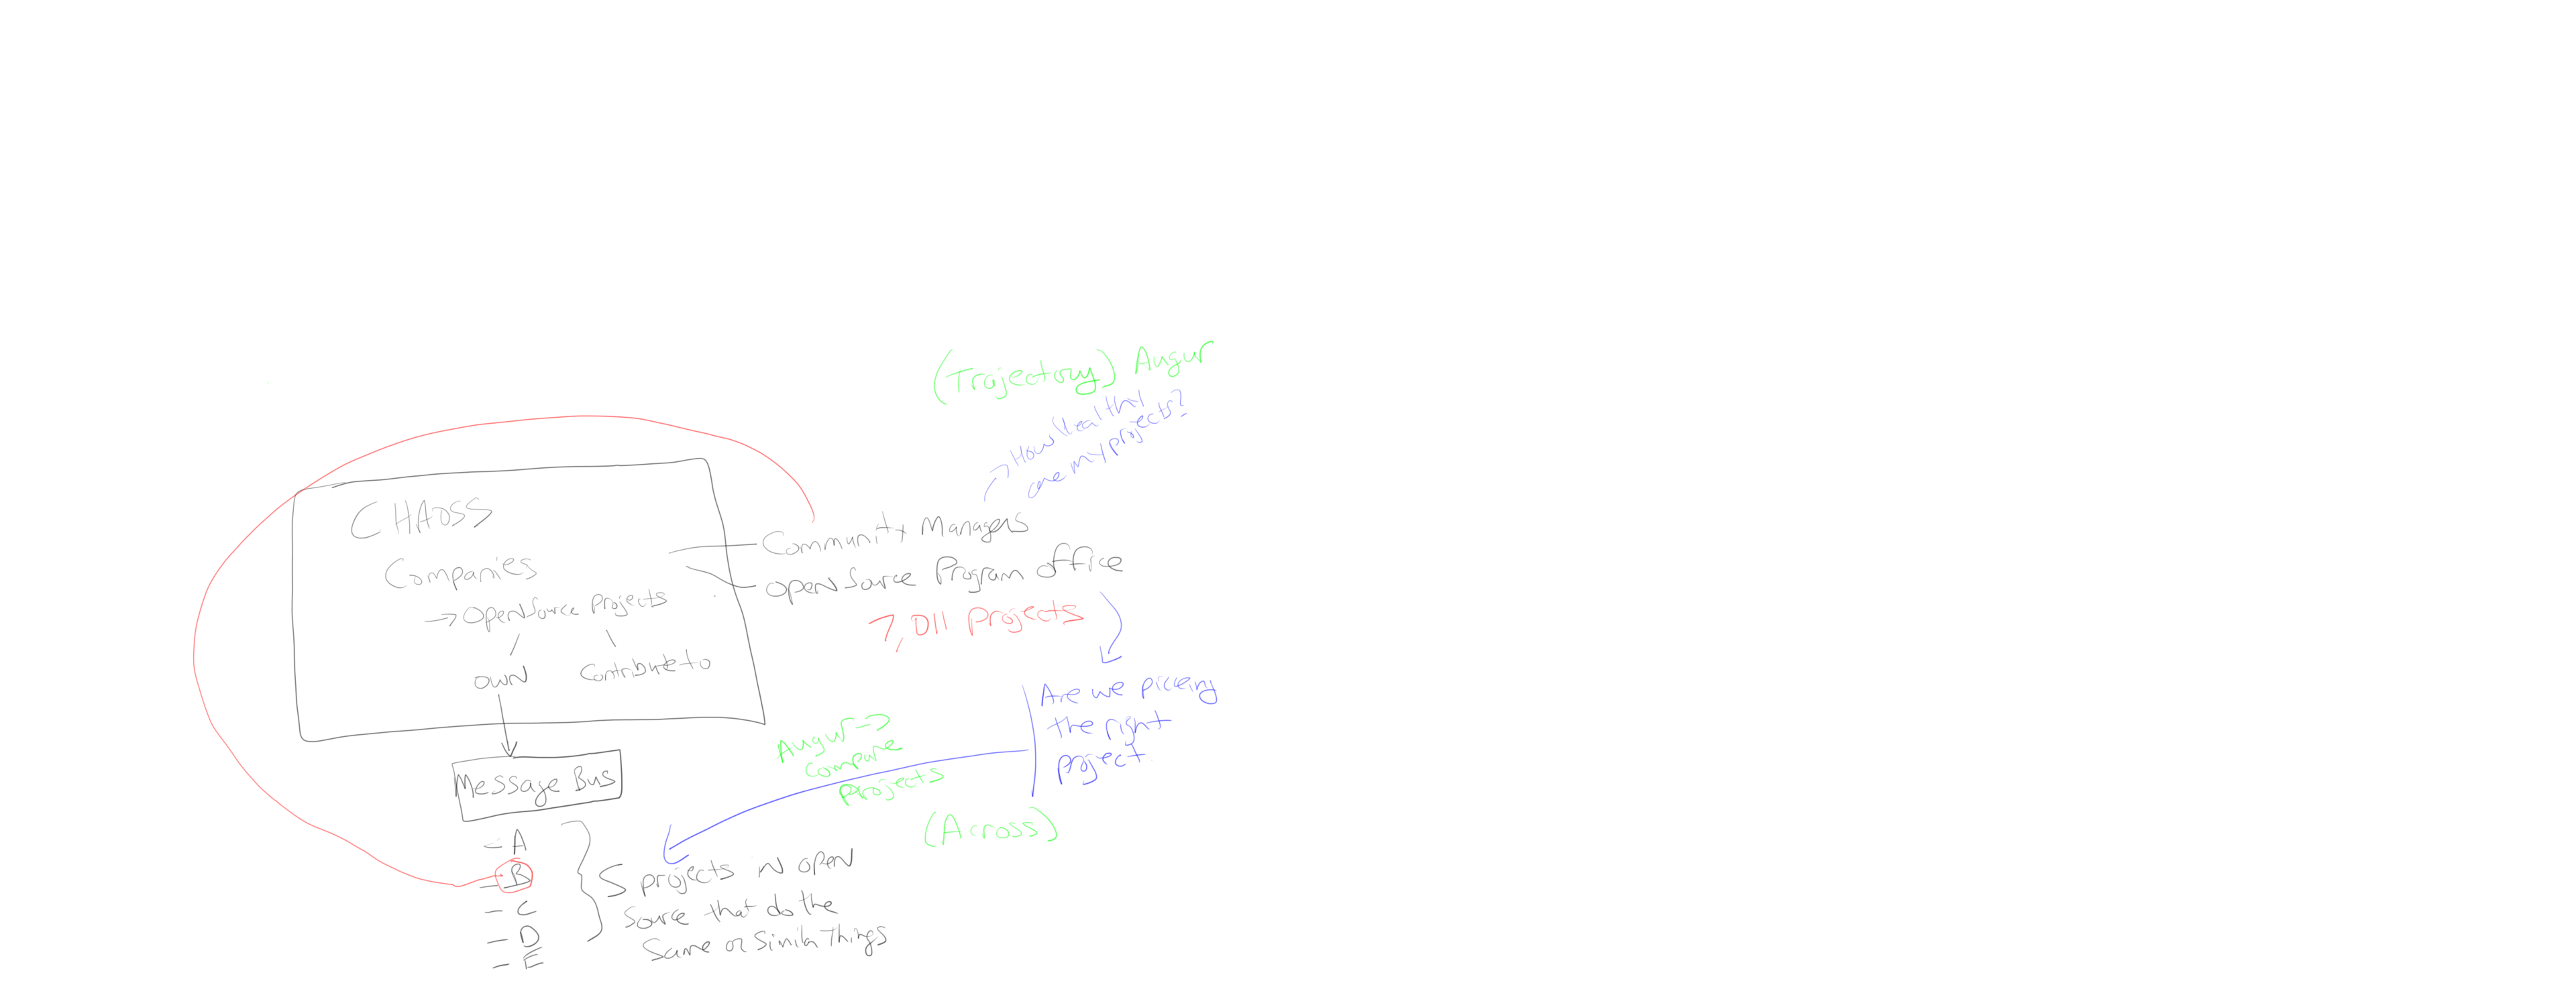 (Trajectory) Augur
→ How Healthy
are my projects?
CHAOSS
Companies
→ Open Source Projects
OWN
Contribute to
Community Managers
Open Source Program Office
7,011 Projects
Are we picking
the right
project
Augur →
Compare
Projects
(Across)
Message Bus
- A
- B
- C
- D
- E
5 projects in open
Source that do the
Same or Similar Things